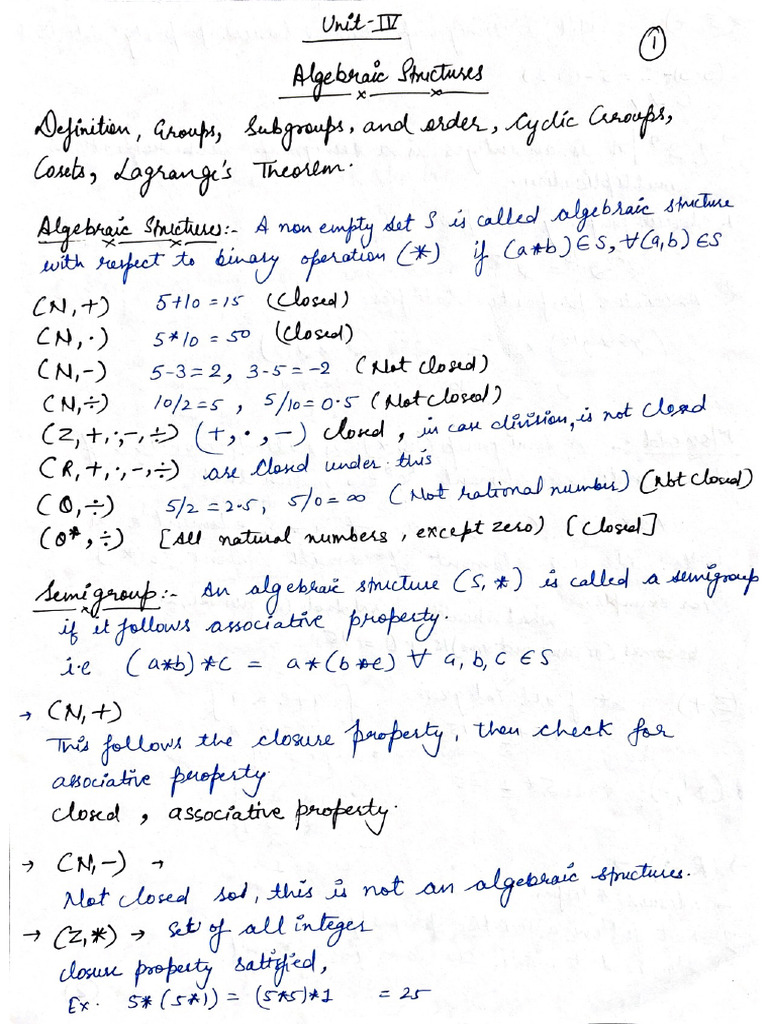 Unit-IV
①
Algebraic Structures
Definition, Groups, Subgroups, and order, Cyclic Groups,
Cosets, Lagrange's Theorem.
Algebraic Structures:- A non empty set S is called algebraic structure
with respect to binary operation (*) if (a*b) ∈ S, ∀(a,b) ∈ S
(N,+) 5+10 = 15 (Closed)
(N,·) 5*10 = 50 (Closed)
(N,-) 5-3=2, 3-5=-2 (Not Closed)
(N,÷) 10/2=5, 5/10=0.5 (Not Closed)
(Z,+,·,-,÷) (+,·,-) closed, in case division, is not closed
(R,+,·,-,÷) are closed under this
(Q,÷) 5/2=2.5, 5/0=∞ (Not rational number) (Not Closed)
(Q*,÷) [All natural numbers, except zero) [Closed]
Semigroup:- An algebraic structure (S,*) is called a semigroup
if it follows associative property.
i.e (a*b)*c = a*(b*c) ∀ a,b,c ∈ S
→ (N,+)
This follows the closure property, then check for
associative property.
closed, associative property.
→ (N,-) →
Not closed so, this is not an algebraic structures.
→ (Z,*) → Set of all integer
closure property satisfied,
Ex. 5*(5*1) = (5*5)*1 = 25